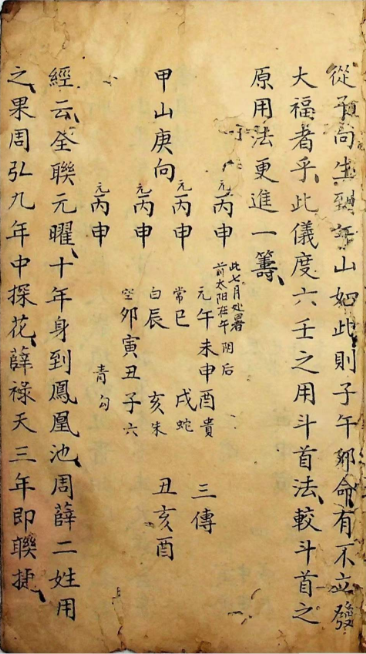 從子高生到山如此則子午卯命有不立發
大福者乎此儀度六壬之用斗首法較斗首之
原用法更進一籌
甲山庚向
元丙申
元丙申
元丙申
元丙申
此七月处暑
前太阳在午 阴后
元午未申酉貴
常巳 戌蛇
白辰 亥朱
空卯寅丑子六
青勾
三傳
丑亥酉
經云荃聯元曜十年身到鳳凰池周薛二姓用
之果周弘九年中探花薛祿天三年即聯捷